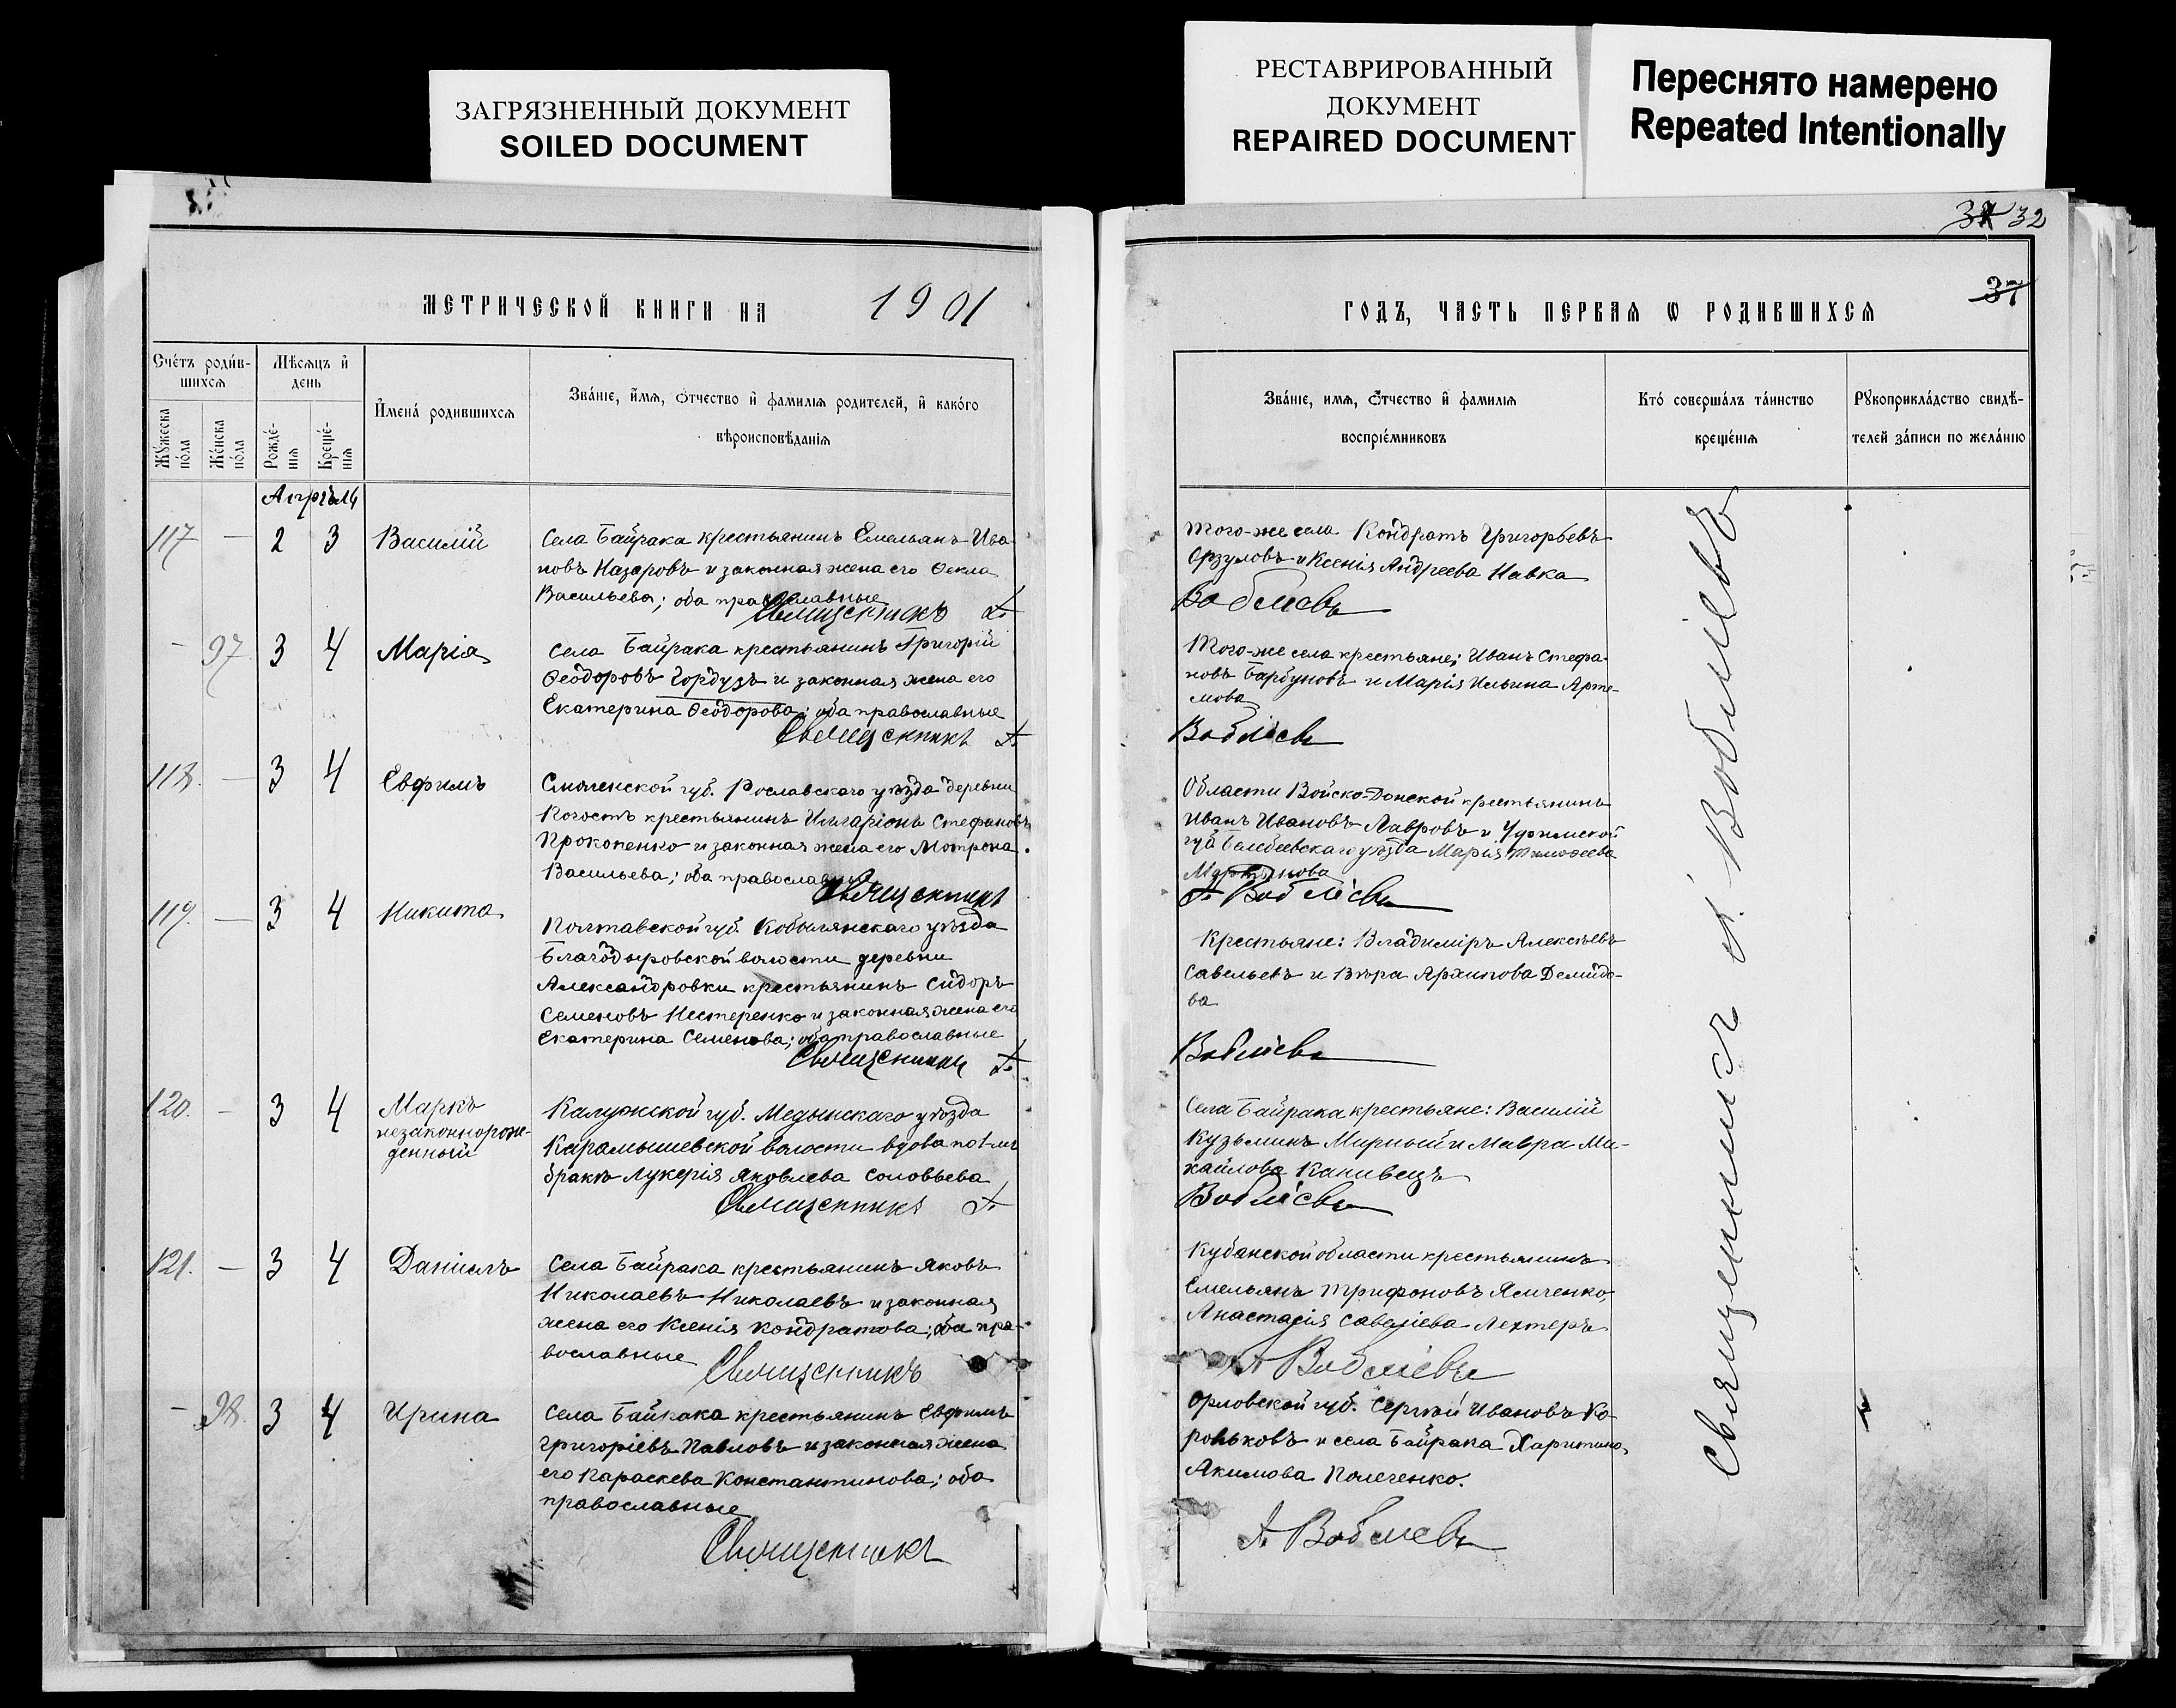 ЗАГРЯЗНЕННЫЙ ДОКУМЕНТ
SOILED DOCUMENT
РЕСТАВРИРОВАННЫЙ
ДОКУМЕНТ
REPAIRED DOCUMENT
Переснято намерено
Repeated Intentionally
МЕТРИЧЕСКОЙ КНИГИ НА 1901
Счетъ родив-
шихся
Мѣсяцъ и
день
Мужеска
пола
Женска
пола
Рожде-
нія
Креще-
нія
Имена родившихся
Званіе, имя, отчество и фамилія родителей, и какого
вѣроисповѣданія
Апрѣль
117 — 2 3 Василій
Села Байрака крестьянинъ Емельянъ Ива-
новъ Назаровъ и законная жена его Ѳекла
Васильева; оба православные
Священникъ А.
— 97 3 4 Марія
Села Байрака крестьянинъ Григорій
Ѳеодоровъ Гордузъ и законная жена его
Екатерина Ѳеодорова; оба православные
Священникъ А.
118. — 3 4 Евфимъ
Смоленской губ. Рославскаго уѣзда деревни
Погостъ крестьянинъ Илларіонъ Стефановъ
Прокопенко и законная жена его Мотрона
Васильева; оба православные
Священникъ
119. — 3 4 Никита
Полтавской губ. Кобылянскаго уѣзда
Благодыровской волости деревни
Александровки крестьянинъ Сидоръ
Семеновъ Нестеренко и законная жена его
Екатерина Семенова; оба православные
Священникъ А.
120. — 3 4 Маркъ
незаконнорож-
денный
Калужской губ. Медынскаго уѣзда
Карамышевской волости вдова по 1-мъ
бракѣ Лукерія Яковлева Соловьева
Священникъ А.
121. — 3 4 Даніилъ
Села Байрака крестьянинъ Яковъ
Николаевъ Николаевъ и законная
жена его Ксенія Кондратова; оба пра-
вославные
Священникъ
— 98. 3 4 Ирина
Села Байрака крестьянинъ Евфимъ
Григоріевъ Павловъ и законная жена
его Параскева Константинова; оба
православные
Священникъ
32
37
ГОДЪ, ЧАСТЬ ПЕРВАЯ Ѡ РОДИВШИХСЯ
Званіе, имя, отчество и фамилія
воспріемниковъ
Кто совершалъ таинство
крещенія
Рукоприкладство свидѣ-
телей записи по желанію
Того-же села Кондратъ Григорьевъ
Орзуловъ и Ксенія Андреева Навка
Воблiевъ
Того-же села крестьяне; Иванъ Стефа-
новъ Барбуновъ и Марія Ильина Арте-
мова
Воблiевъ
Области Войско-Донской крестьянинъ
Иванъ Ивановъ Лавровъ и Уфимской
губ. Белебеевскаго уѣзда Марія Тимоѳеева
Мартынова
А. Воблiевъ
Крестьяне: Владиміръ Алексѣевъ
Савельевъ и Вѣра Архипова Демидо-
ва
Воблiевъ
Села Байрака крестьяне: Василій
Кузьминъ Мирный и Мавра Ми-
хайлова Канивецъ
Воблiевъ
Кубанской области крестьянинъ
Емельянъ Трифоновъ Ясиченко,
Анастасія Савеліева Лехтеръ
А Воблiевъ
Орловской губ. Сергѣй Ивановъ Ко-
роньковъ и села Байрака Харитина
Акимова Полеченко.
А. Воблiевъ
Священникъ А. Воблiевъ